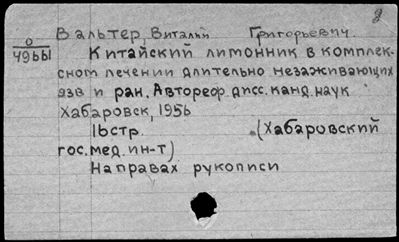 Вальтер, Виталий Григорьевич.
О
49661
Китайский лимонник в комплек-
сном лечении длительно незаживающих
язв и ран. Автореф. дисс. канд. наук
Хабаровск, 1956
16стр. (Хабаровский
гос. мед. ин-т)
На правах рукописи